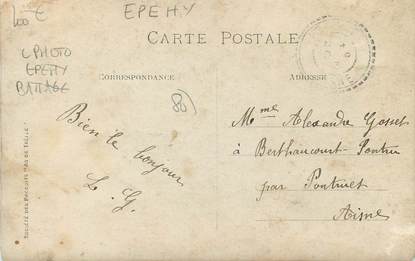 100€
EPEHY
CARTE POSTALE
C PHOTO
EPEHY
BATTAGE
CORRESPONDANCE
ADRESSE
80
Bien le bonjour
L. G.
Mme Alexandre Gosset
à Berthaucourt-Pontru
par Pontruet
Aisne
SOCIÉTÉ DES PRODUITS "AS DE TRÈFLE"